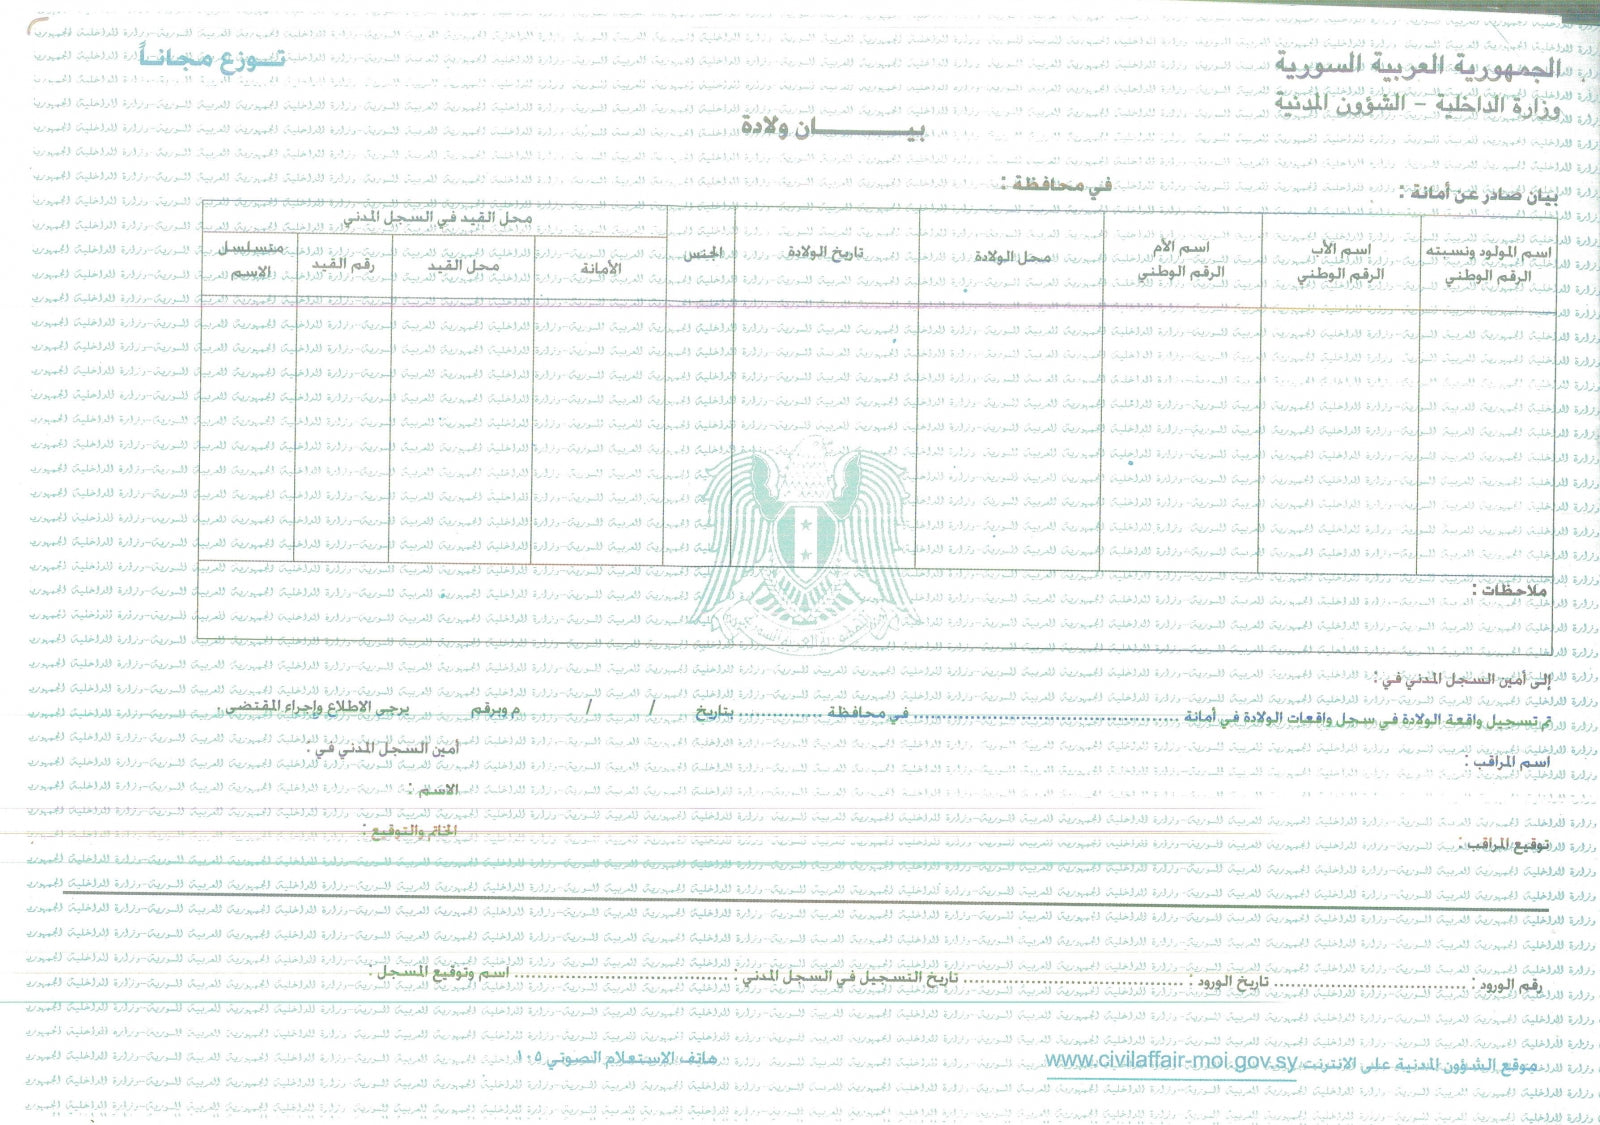 الجمهورية العربية السورية
توزع مجاناً
وزارة الداخلية - الشؤون المدنية
بيـــــــان ولادة
بيان صادر عن أمانة : في محافظة :
اسم المولود ونسبته الرقم الوطني
اسم الأب الرقم الوطني
اسم الأم الرقم الوطني
محل الولادة
تاريخ الولادة
الجنس
محل القيد في السجل المدني
الأمانة
محل القيد
رقم القيد
متسلسل الاسم
ملاحظات :
إلى أمين السجل المدني في :
تم تسجيل واقعة الولادة في سجل واقعات الولادة في أمانة ............................................ في محافظة ............... بتاريخ / / م وبرقم يرجى الاطلاع وإجراء المقتضى .
اسم المراقب : أمين السجل المدني في :
الاسم :
توقيع المراقب : الخاتم والتوقيع :
رقم الورود : .................................. تاريخ الورود : ....................................... تاريخ التسجيل في السجل المدني : ...................................... اسم وتوقيع المسجل :
موقع الشؤون المدنية على الانترنت www.civilaffair-moi.gov.sy هاتف الاستعلام الصوتي ١٠٥